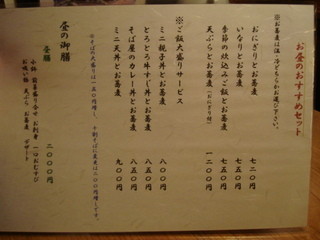 お昼のおすすめセット
※お蕎麦は温・冷どちらかお選び下さい。
おにぎりとお蕎麦 七二〇円
いなりとお蕎麦 七五〇円
季節の炊込みご飯とお蕎麦 七五〇円
天ぷらとお蕎麦 一二〇〇円
※ご飯大盛りサービス
ミニ親子丼とお蕎麦 八〇〇円
とろとろ牛すじ丼とお蕎麦 八五〇円
そば屋のカレー丼とお蕎麦 八五〇円
ミニ天丼とお蕎麦 九〇〇円
昼の御膳
二〇〇〇円
お吸い物 天ぷら お蕎麦 デザート